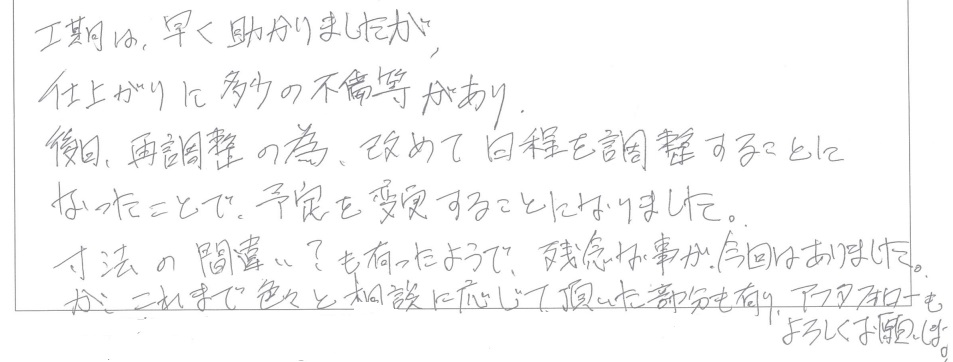 工期は、早く助かりましたが、
仕上がりに多少の不備等があり、
後日、再調整の為、改めて日程を調整することに
なったことで、予定を変更することになりました。
寸法の間違い?も有ったようで、残念な事が、今回はありました。
が、これまで色々と相談に応じて頂いた部分も有り、アフタフォローも
よろしくお願いします。